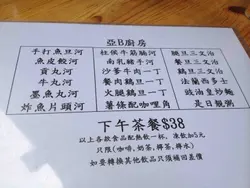 亞B廚房
手打魚旦河 柱侯牛筋腩河 腿旦三文治
魚皮餃河 南乳豬手河 餐旦三文治
貢丸河 沙爹牛肉一丁 餐肉三文治
牛丸河 餐肉鷄旦一丁 法蘭西多士
墨魚丸河 火腿鷄旦一丁 豉油皇炒麵
炸魚片頭河 薯條配咖哩角 是日靚粥
下午茶餐$38
以上各款食品配熱飲一杯、凍飲加5元
只限(咖啡,奶茶,檸茶,檸水)
如要轉換其他飲品只須補回差價